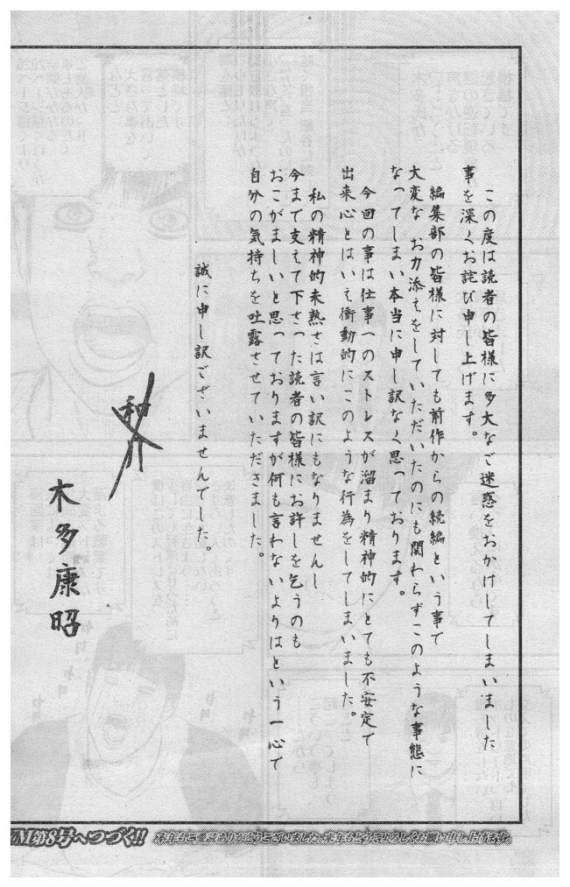 この度は読者の皆様に多大なご迷惑をおかけしてしまいました
事を深くお詫び申し上げます。
編集部の皆様に対しても前作からの続編という事で
大変な お力添えをしていただいたのにも関わらずこのような事態に
なってしまい本当に申し訳なく思っております。
今回の事は仕事へのストレスが溜まり精神的にとても不安定で
出来心とはいえ衝動的にこのような行為をしてしまいました。
私の精神的未熟さは言い訳にもなりませんし
今まで支えて下さった読者の皆様にお許しを乞うのも
おこがましいと思っておりますが何も言わないよりはという一心で
自分の気持ちを吐露させていただきました。
誠に申し訳ございませんでした。
木多康昭
YM第8号へつづく!!